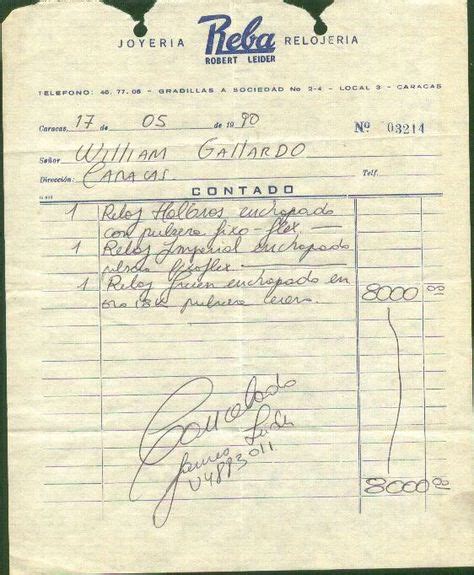 JOYERIA Reba RELOJERIA
ROBERT LEIDER
TELEFONO: 46.77.06 - GRADILLAS A SOCIEDAD No 2-4 - LOCAL 3 - CARACAS
Caracas, 17 de 05 de 1990 Nº 03214
Señor WILLIAM GALLARDO
Dirección: CARACAS. Telf.
CONTADO
1 Reloj enchapado
con pulsera fixo-flex.
1 Reloj Imperial enchapado
fixoflex.
1 Reloj enchapado en
oro pulsera 8000 00
Cancelado
James
V4883011
8000 00